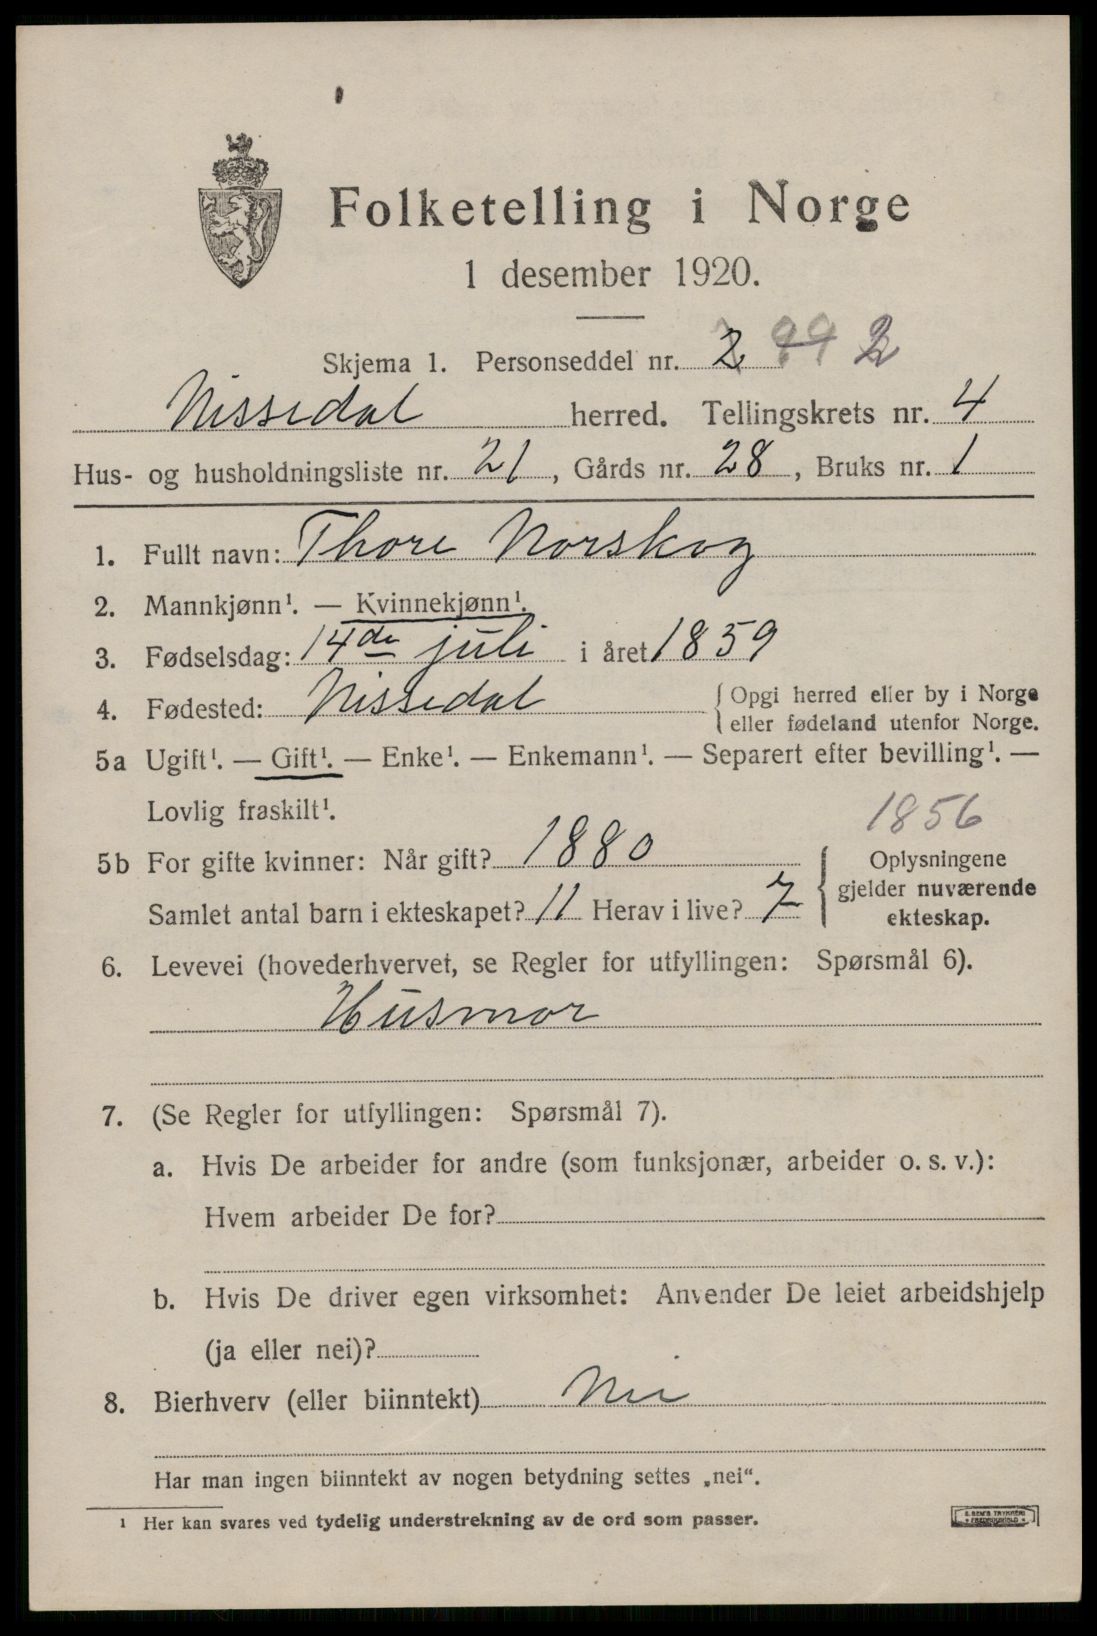 Folketelling i Norge
1 desember 1920.
Skjema 1. Personseddel nr. 2 99 2
Nissedal herred. Tellingskrets nr. 4
Hus- og husholdningsliste nr. 21, Gårds nr. 28, Bruks nr. 1
1. Fullt navn: Thore Norskog
2. Mannkjønn¹. — Kvinnekjønn¹.
3. Fødselsdag: 14de juli i året 1859
4. Fødested: Nissedal { Opgi herred eller by i Norge
eller fødeland utenfor Norge.
5a Ugift¹. — Gift¹. — Enke¹. — Enkemann¹. — Separert efter bevilling¹. —
Lovlig fraskilt¹.
1856
5b For gifte kvinner: Når gift? 1880
Samlet antal barn i ekteskapet? 11 Herav i live? 7
{ Oplysningene
gjelder nuværende
ekteskap.
6. Levevei (hovederhvervet, se Regler for utfyllingen: Spørsmål 6).
Husmor
7. (Se Regler for utfyllingen: Spørsmål 7).
a. Hvis De arbeider for andre (som funksjonær, arbeider o. s. v.):
Hvem arbeider De for?
b. Hvis De driver egen virksomhet: Anvender De leiet arbeidshjelp
(ja eller nei)?
8. Bierhverv (eller biinntekt) Nei
Har man ingen biinntekt av nogen betydning settes „nei“.
¹ Her kan svares ved tydelig understrekning av de ord som passer.